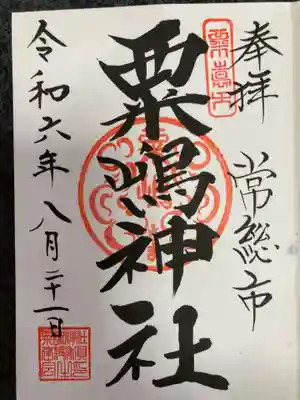 奉拝
常総市
粟嶋神社
令和六年八月二十一日